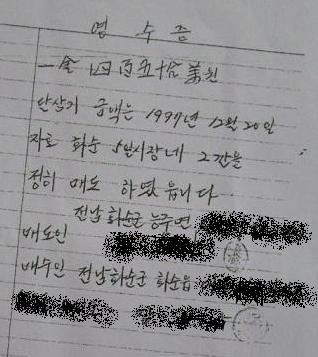 영수증
一金 四百五十余萬원
안삼기 금액은 1997년 12월 20일
자로 화순 5일시장내 2칸을
정히 매도 하였읍니다
전남 화순군 능주면
매도인
매수인 전남화순군 화순읍